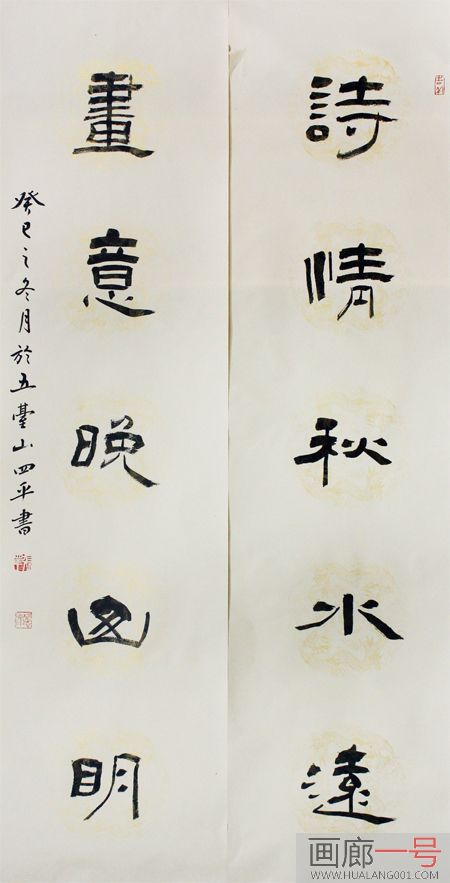 詩情秋水遠
畫意晚山明
癸巳之冬月於五臺山四平書
画廊一号
WWW.HUALANG001.COM